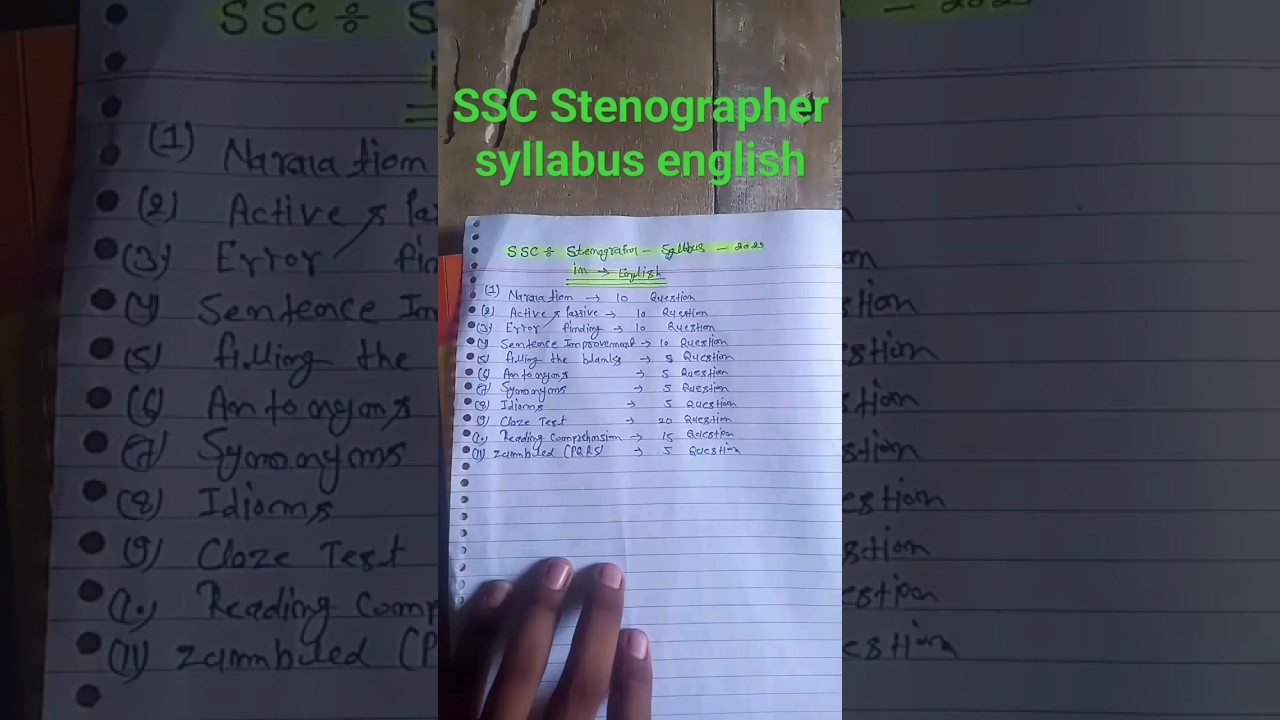 SSC Stenographer
syllabus english
SSC ÷ Stenografior - Syllbus - 2023
in → English
(1) Naraation → 10 Question
(2) Active & Passive → 10 Question
(3) Error finding → 10 Question
(4) Sentence Improvement → 10 Question
(5) filling the blanks → 5 Question
(6) Antonyms → 5 Question
(7) Synonyms → 5 Question
(8) Idioms → 5 Question
(9) Cloze Test → 20 Question
(10) Reading comprehension → 15 Question
(11) Zumbled (PQRS) → 5 Question